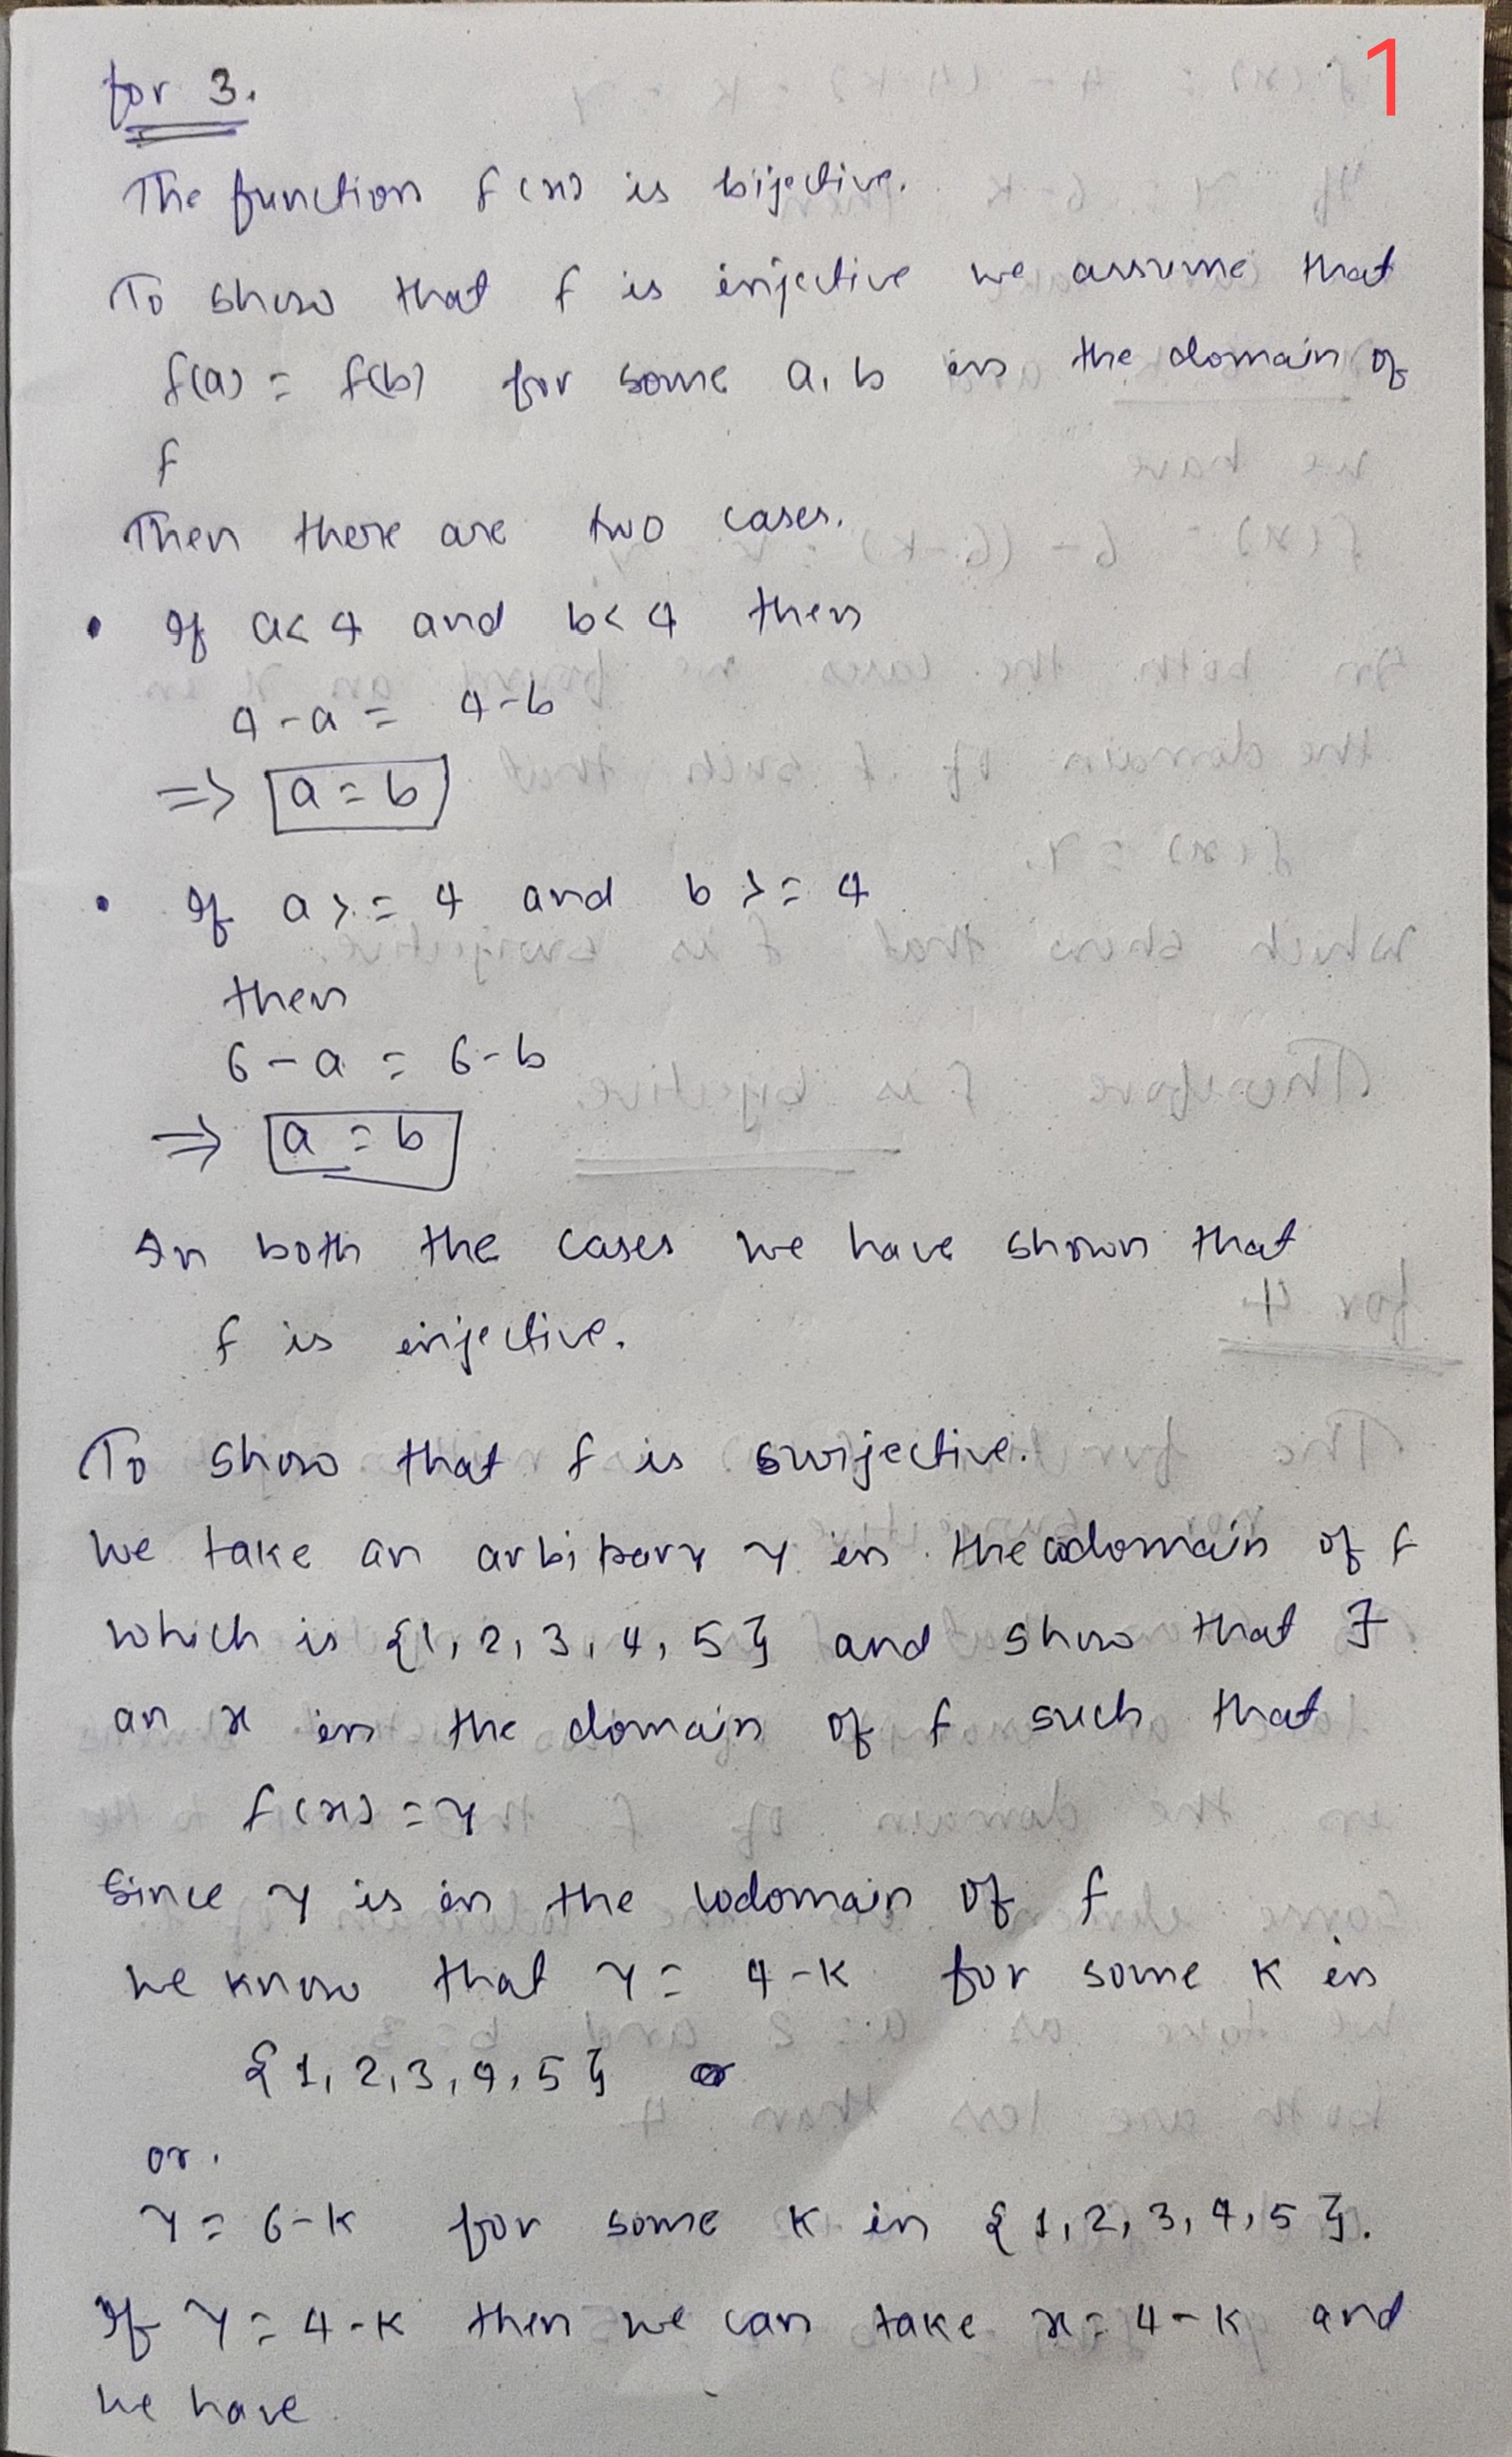 1
for 3.
The function f(x) is bijective.
To show that f is injective we assume that
f(a) = f(b) for some a, b in the domain of
f
Then there are two cases.
• If a < 4 and b < 4 then
4 - a = 4 - b
=> a = b
• If a >= 4 and b >= 4
then
6 - a = 6 - b
=> a = b
In both the cases we have shown that
f is injective.
To show that f is surjective.
We take an arbitrary y in the codomain of f
which is {1, 2, 3, 4, 5} and show that ∃
an x in the domain of f such that
f(x) = y
Since y is in the codomain of f
we know that y = 4 - k for some k in
{1, 2, 3, 4, 5}
or.
y = 6 - k for some k in {1, 2, 3, 4, 5}.
If y = 4 - k then we can take x = 4 - k and
we have